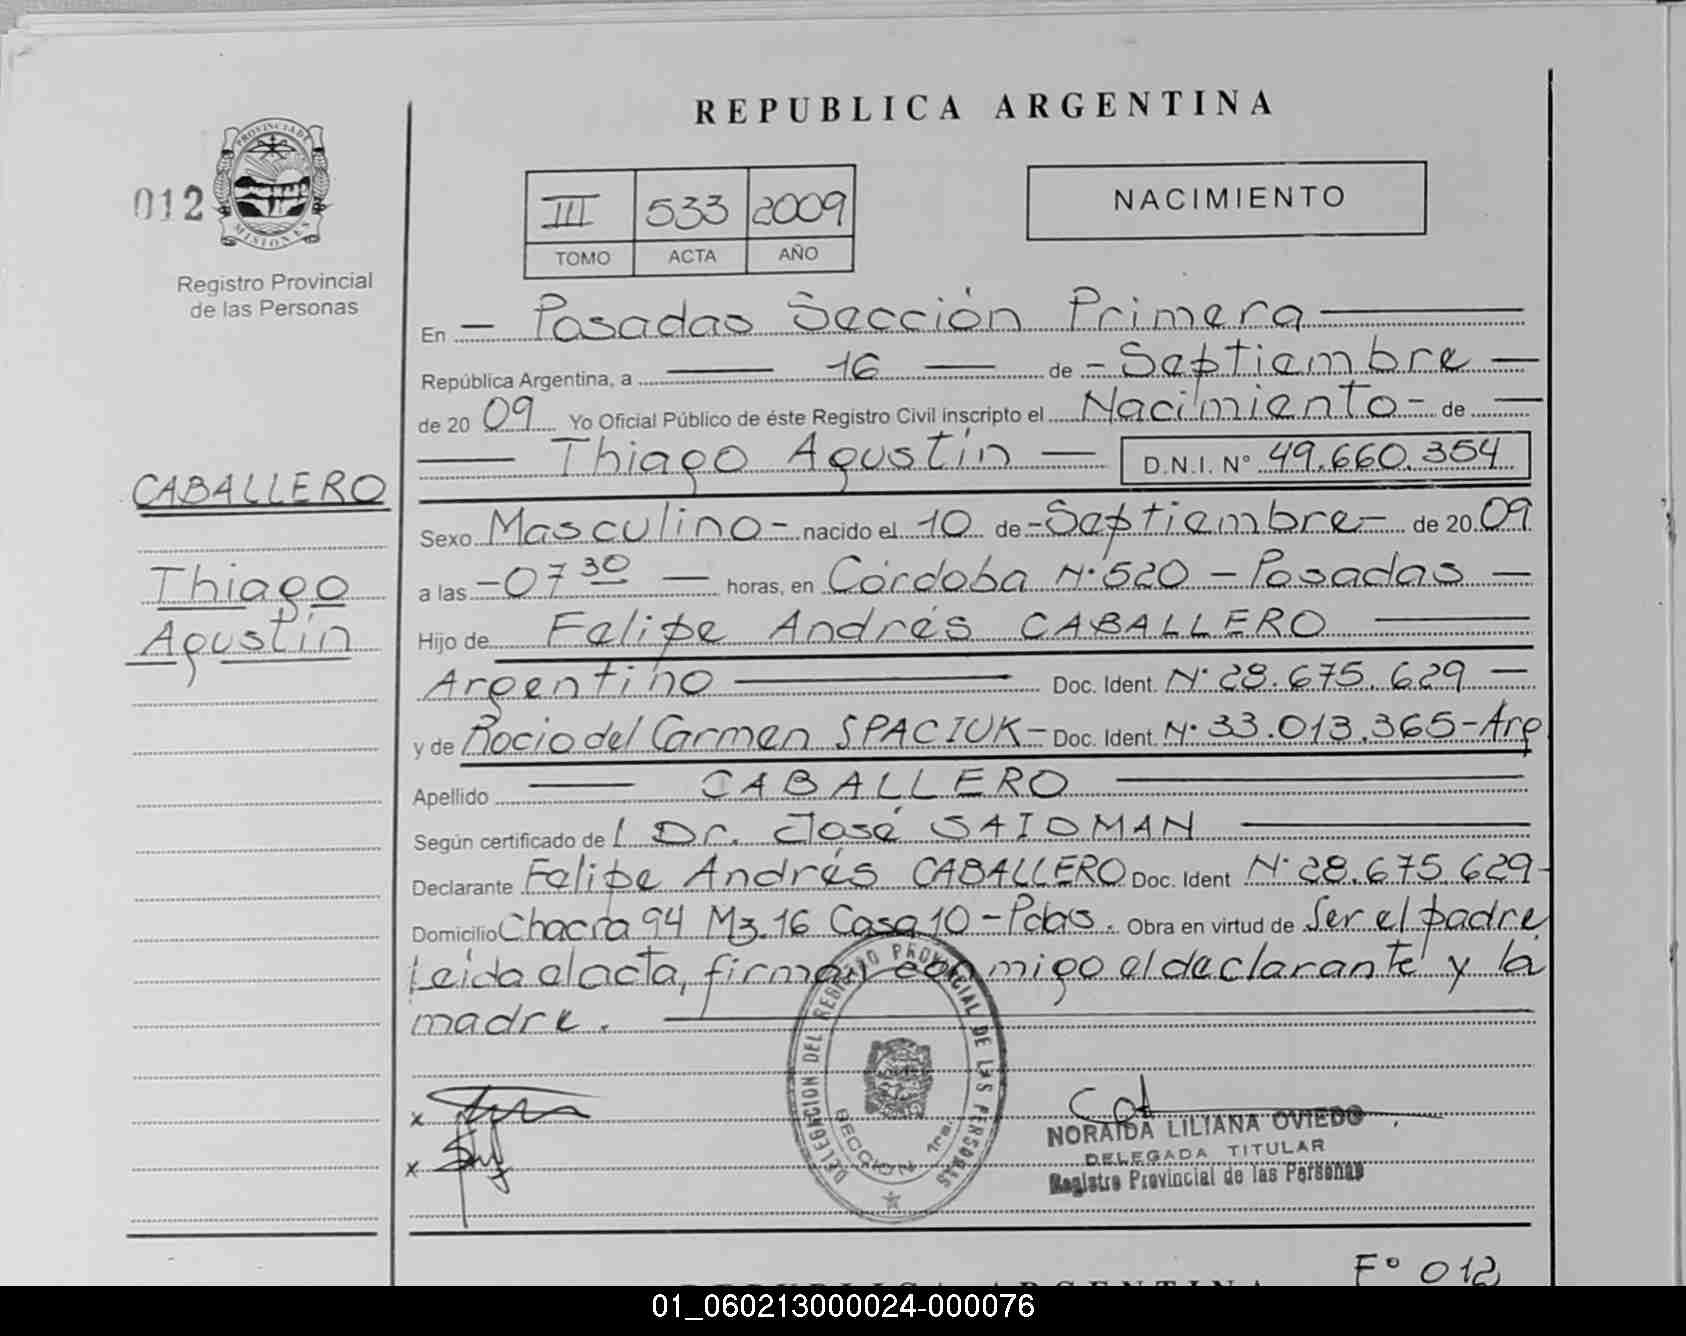 REPUBLICA ARGENTINA
012
PROVINCIA DE
MISIONES
Registro Provincial
de las Personas
III 533 2009
TOMO ACTA AÑO
NACIMIENTO
En - Posadas Sección Primera
República Argentina, a 16 de - Septiembre
de 20 09 Yo Oficial Público de éste Registro Civil inscripto el Nacimiento - de
Thiago Agustín D.N.I. N° 49.660.354
CABALLERO
Thiago
Agustín
Sexo Masculino - nacido el 10 de - Septiembre - de 20 09
a las - 07 30 horas, en Córdoba N° 520 - Posadas
Hijo de Felipe Andrés CABALLERO
Argentino Doc. Ident. N° 28.675.629
y de Rocio del Carmen SPACIUK - Doc. Ident. N° 33.013.365 - Arg
Apellido CABALLERO
Según certificado de Dr. José SAIDMAN
Declarante Felipe Andrés CABALLERO Doc. Ident N° 28.675.629-
Domicilio Chacra 94 Mz. 16 Casa 10 - Pdas. Obra en virtud de Ser el padre
Leida el acta, firman con migo el declarante y la
madre.
x
x
DELEGACION DEL REGISTRO PROVINCIAL DE LAS PERSONAS
SECCION 1ra.
NORAIDA LILIANA OVIEDO
DELEGADA TITULAR
Registro Provincial de las Personas
F° 012
REPUBLICA ARGENTINA
01_060213000024-000076